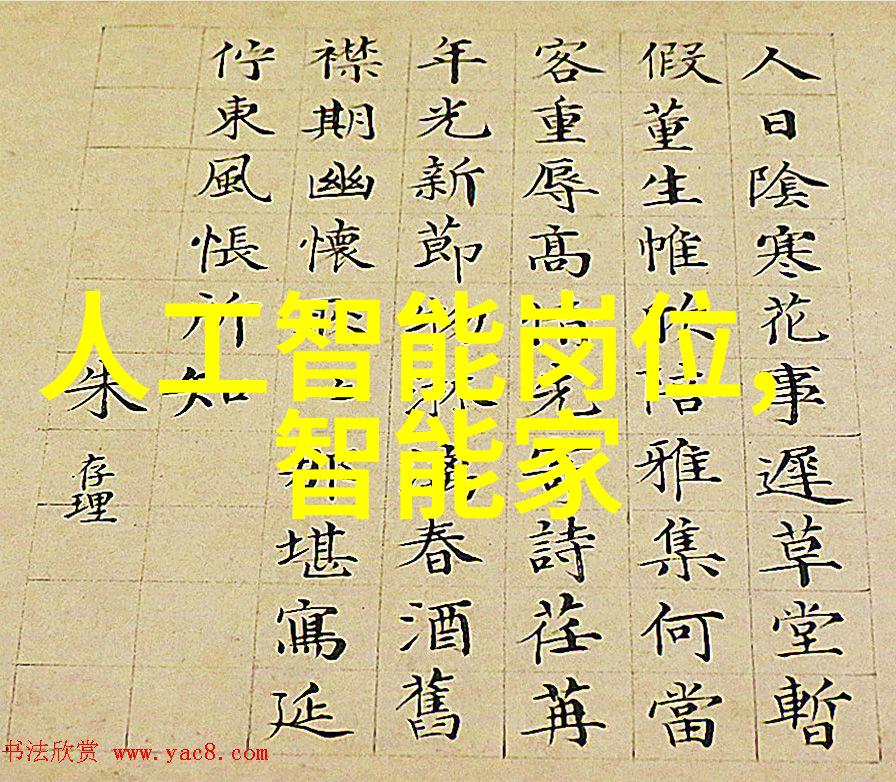 人日陰寒花事遲草堂暫
假董生帷欣陪雅集何當
客重辱高詩荏苒
年光新節物春酒舊
襟期幽懷堪寫延
佇東風悵所知
朱存理
人工智能岗位,
智能家
书法欣赏 www.yac8.com